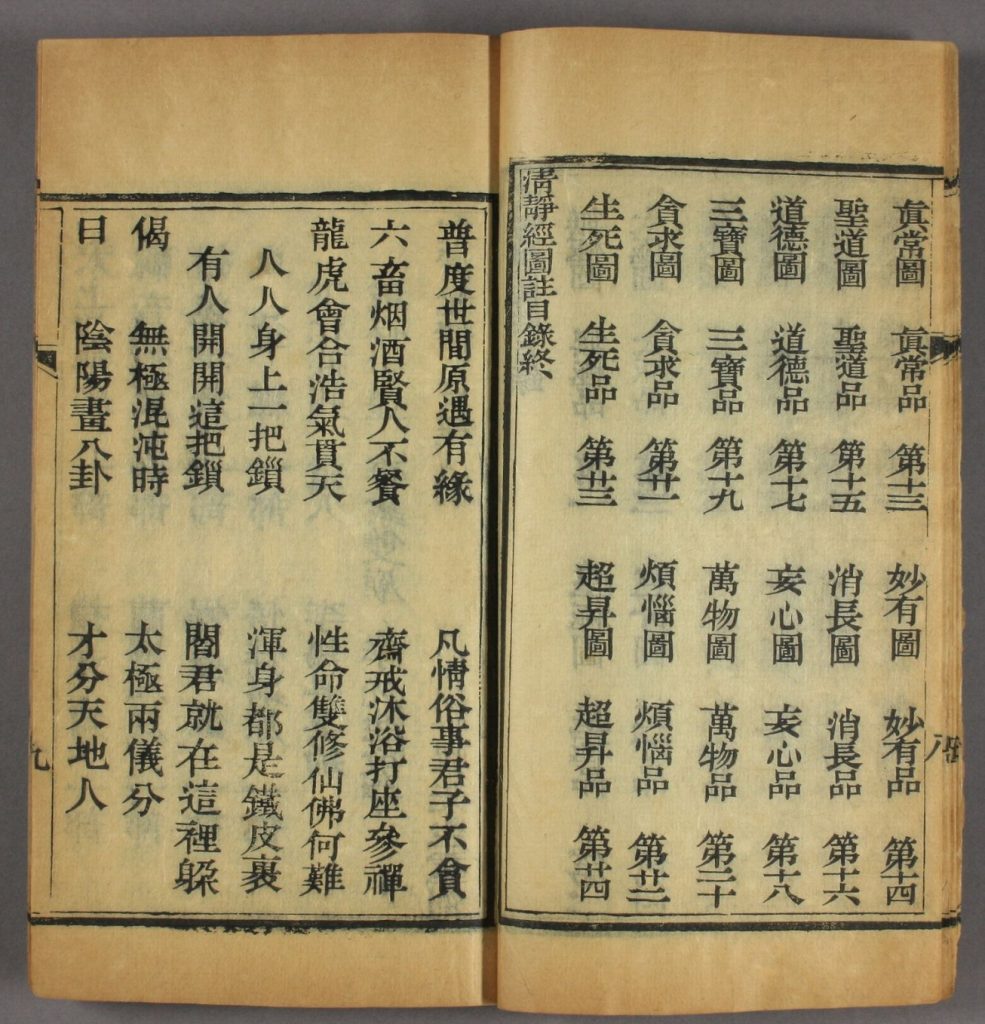 眞常圖 眞常品 第十三 妙有圖 妙有品 第十四
聖道圖 聖道品 第十五 消長圖 消長品 第十六
道德圖 道德品 第十七 妄心圖 妄心品 第十八
三寶圖 三寶品 第十九 萬物圖 萬物品 第二十
貪求圖 貪求品 第廿一 煩惱圖 煩惱品 第廿二
生死圖 生死品 第廿三 超昇圖 超昇品 第廿四
清靜經圖註目錄終
普度世間原遇有緣 凡情俗事君子不貪
六畜烟酒賢人不餐 齋戒沐浴打座參禪
龍虎會合浩氣貫天 性命雙修仙佛何難
人人身上一把鎖 渾身都是鐵皮裹
有人開開這把鎖 閻君就在這裡躲
偈 無極混沌時 太極兩儀分
曰 陰陽畫八卦 才分天地人
九